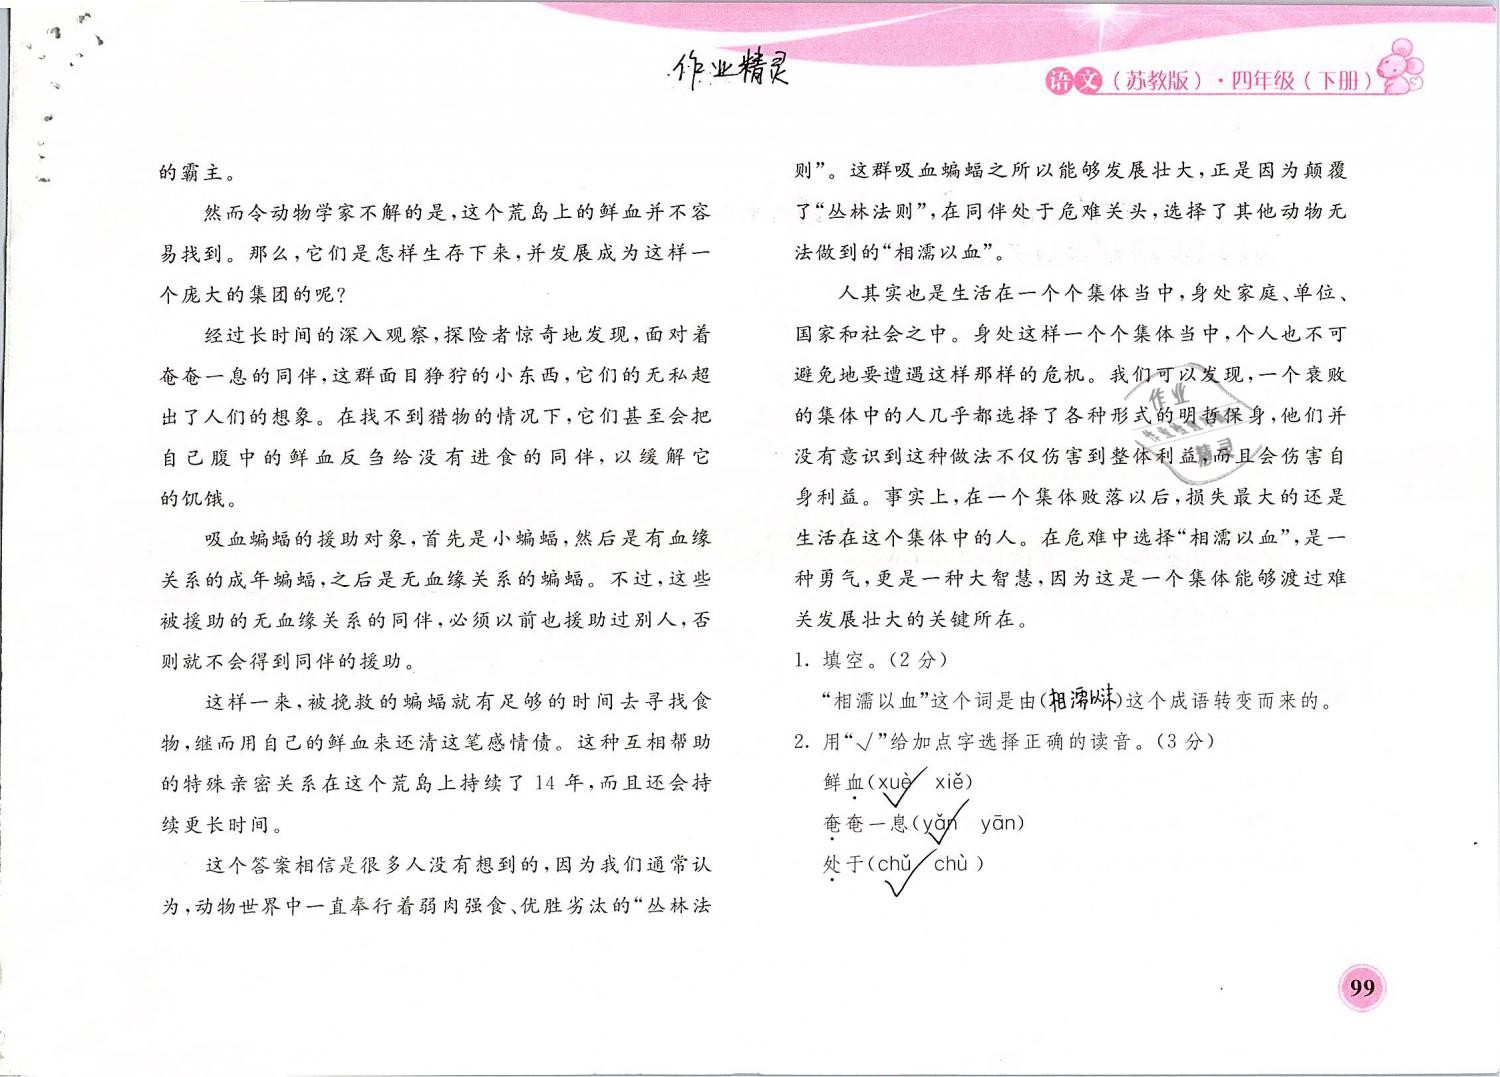 作业精灵
语文（苏教版）·四年级（下册）
的霸主。
然而令动物学家不解的是，这个荒岛上的鲜血并不容
易找到。那么，它们是怎样生存下来，并发展成为这样一
个庞大的集团的呢？
经过长时间的深入观察，探险者惊奇地发现，面对着
奄奄一息的同伴，这群面目狰狞的小东西，它们的无私超
出了人们的想象。在找不到猎物的情况下，它们甚至会把
自己腹中的鲜血反刍给没有进食的同伴，以缓解它
的饥饿。
吸血蝙蝠的援助对象，首先是小蝙蝠，然后是有血缘
关系的成年蝙蝠，之后是无血缘关系的蝙蝠。不过，这些
被援助的无血缘关系的同伴，必须以前也援助过别人，否
则就不会得到同伴的援助。
这样一来，被挽救的蝙蝠就有足够的时间去寻找食
物，继而用自己的鲜血来还清这笔感情债。这种互相帮助
的特殊亲密关系在这个荒岛上持续了 14 年，而且还会持
续更长时间。
这个答案相信是很多人没有想到的，因为我们通常认
为，动物世界中一直奉行着弱肉强食、优胜劣汰的“丛林法
则”。这群吸血蝙蝠之所以能够发展壮大，正是因为颠覆
了“丛林法则”，在同伴处于危难关头，选择了其他动物无
法做到的“相濡以血”。
人其实也是生活在一个个集体当中，身处家庭、单位、
国家和社会之中。身处这样一个个集体当中，个人也不可
避免地要遭遇这样那样的危机。我们可以发现，一个衰败
的集体中的人几乎都选择了各种形式的明哲保身，他们并
没有意识到这种做法不仅伤害到整体利益，而且会伤害自
身利益。事实上，在一个集体败落以后，损失最大的还是
生活在这个集体中的人。在危难中选择“相濡以血”，是一
种勇气，更是一种大智慧，因为这是一个集体能够渡过难
关发展壮大的关键所在。
1. 填空。（2 分）
“相濡以血”这个词是由（相濡以沫）这个成语转变而来的。
2. 用“√”给加点字选择正确的读音。（3 分）
鲜血（xuè√ xiě）
奄奄一息（yǎn√ yān）
处于（chǔ√ chù ）
作业
精灵
99